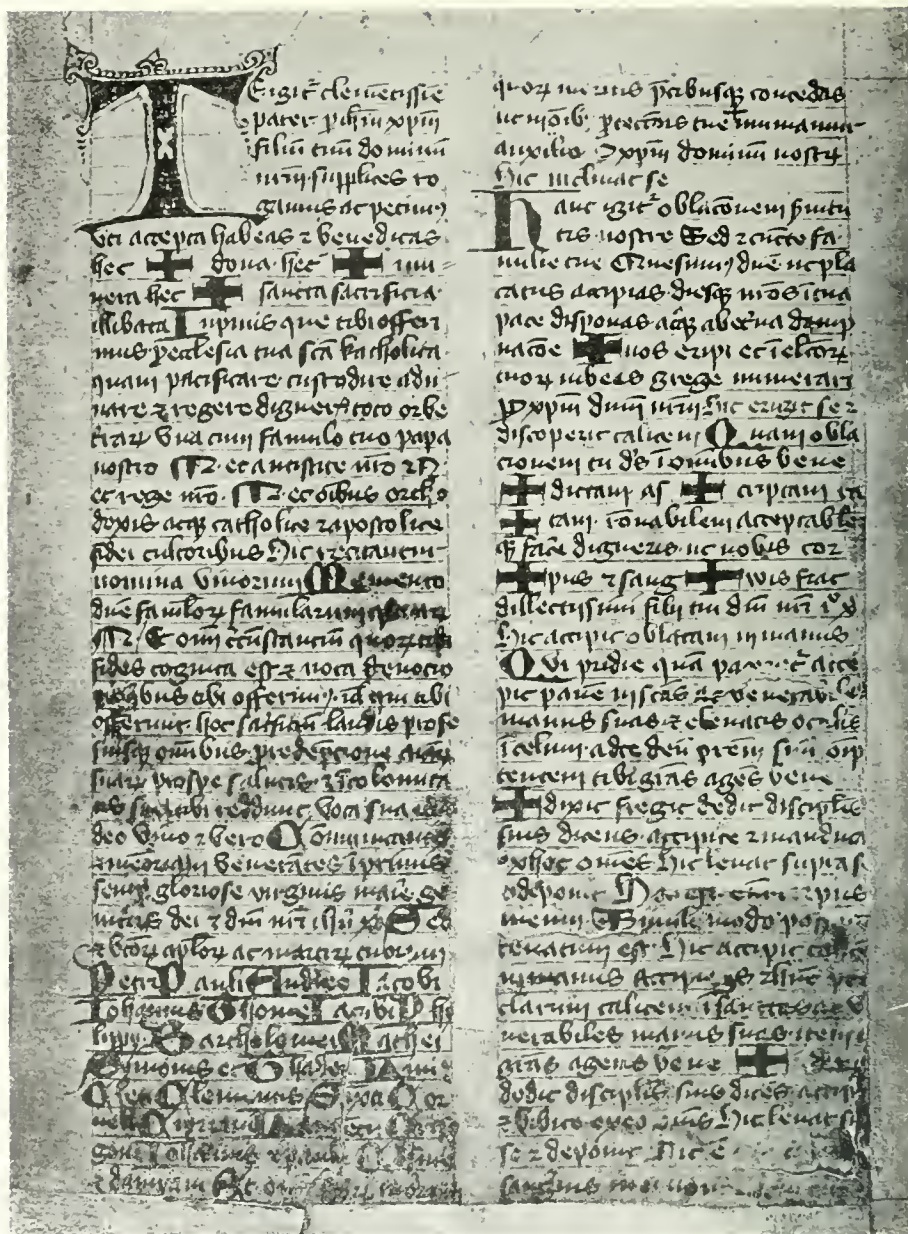 Te igit clemetissie
pater p ihm xpm
filiu tuu dominu
nrm supplices ro
gamus ac petim
uti accepta habeas et benedicas
hec ✠ dona hec ✠ mu
nera hec ✠ sancta sacrificia
illibata Inprimis que tibi offeri
mus p ecclesia tua sca katholica
quam pacificare custodire adu
nare et regere digneris toto orbe
trar Una cum famulo tuo papa
nostro N. et antistite nro et N
et rege nro N. et oibus ortho
doxis atq catholice et apostolice
fidei cultoribus Hic recitantur
nomina vivorum Memento
dne famulor famularum
N. Et omi cirustancium quor tibi
fides cognita est et nota devocio
pro quibus tibi offerim vl qui tibi
offerunt hoc sacrificiu laudis p se
suisq omnibus p redempcione aiar
suar p spe salutis et icolumita
tis sue tibi reddunt vota sua
deo vivo et vero Comunicantes
et memoriam venerates i primis
semp gloriose virginis marie ge
nitricis dei et dni nri ihu xpi Sed
et btor aplor ac martir tuor
Petri Pauli Andree Iacobi
Iohannis Thome Iacobi Phi
lippi Bartholomei Mathei
Symonis et Thadei Lini
Cleti Clementis Sixti Cor
neli Cipriani
goni Iohannis et pauli Cosme
et damiani Et
quor meritis pcibusq concedas
ut i oib protectionis tue muniamur
auxilio P xpm dominum nostr
Hic inclinat se
Hanc igit oblacionem svitu
tis nostre Sed et cuncte fa
milie tue Quesum dne ut pla
catus accipias diesq nros i tua
pace disponas atq ab etna damp
nacoe ✠ nos eripi et i elcor
tuor iubeas grege numerari
P xpm dnm nrm Hic erigit se et
discoperit calicem Quam obla
cionem tu ds i omibus bene
✠ dictam as ✠ criptam ra
✠ tam ronabilem acceptabile
q facere digneris ut nobis cor
✠ pus et sang ✠ wis fiat
dillectissimi filii tui dni nri
Hic accipit oblatam in manus
Qui pridie qua pateret acce
pit pane in scas ac venerabiles
manus suas et elevatis oculis
i celum ad te deu prem suu oip
tentem tibi gras ages bene
✠ dixit fregit dedit discipulis
suis dicens accipite et manduca
te ex hoc omes Hic levat supra se
et deponit Hoc est enim corpus
meum Simili modo postq
cenatum est Hic accipit calice
in manus Accipiens et hunc pre
clarum calicem i sanctas ac ve
nerabiles manus suas item
gras agens bene ✠ dixit
dedit discipulis suis dices accipite
et bibite ex eo omes Hic levat su
se et deponit Hic
sanguinis mei novi